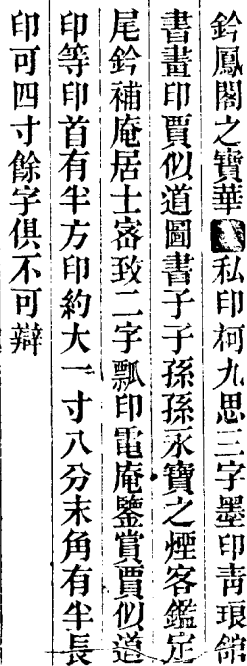 鈐鳳閣之寶華私印柯九思三字墨印靑琅館
書畫印賈似道圖書子子孫孫永寶之煙客鑑定
尾鈐補庵居士宻致二字瓢印電庵鑒賞賈似道
印等印首有半方印約大一寸八分末角有半長
印可四寸餘字俱不可辯